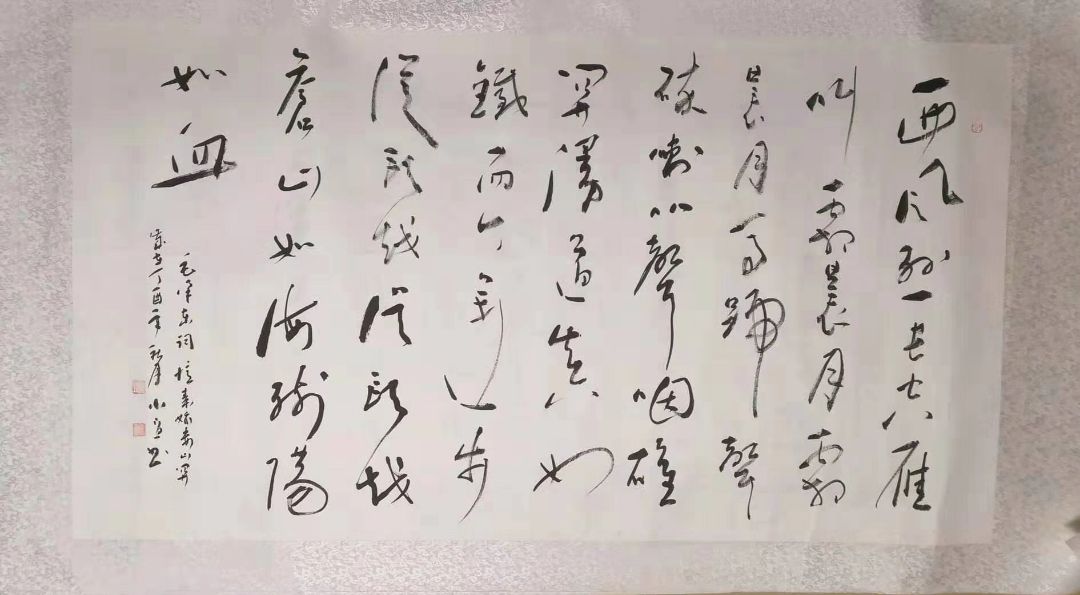 西风烈一長空雁
叫霜晨月霜
晨月馬蹄聲
碎喇叭聲咽雄
關漫道真如
鐵而今邁步
從頭越從頭越
蒼山如海殘陽
如血
毛澤東詞憶秦娥婁山關
歲在丁酉年秋月小書